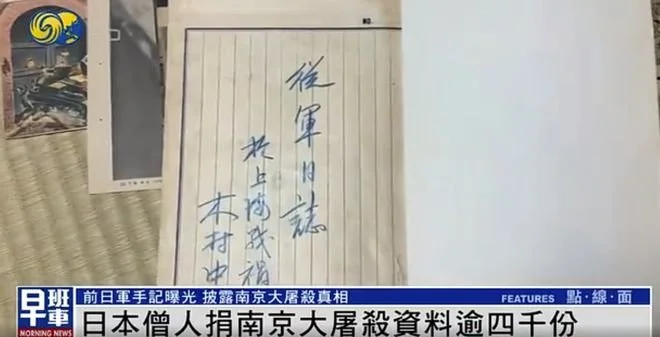 NO.
從軍日誌
於上海戰
木村中
早班車
MORNING NEWS
前日軍手記曝光 披露南京大屠殺真相
FEATURES 點·線·面
日本僧人捐南京大屠殺資料逾四千份